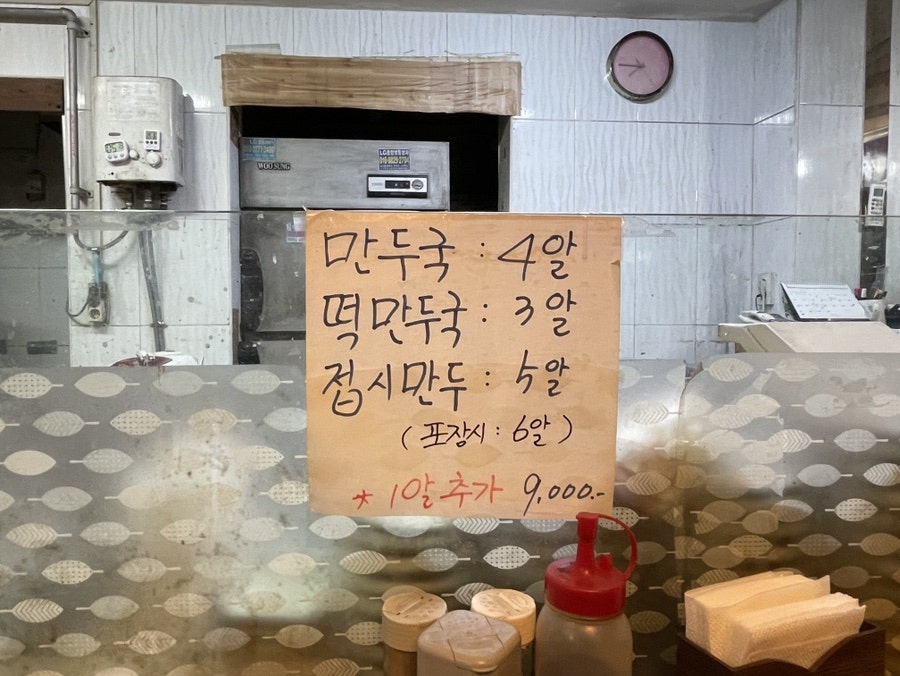 WOO SUNG
만두국 : 4알
떡만두국 : 3알
접시만두 : 5알
(포장시 : 6알)
* 1알 추가 9,000.-